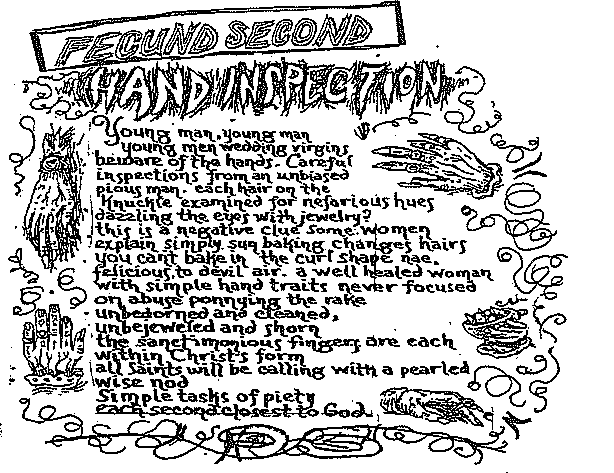 FECUND SECOND
HAND INSPECTION
Young man, young man
young men wedding virgins
beware of the hands. Careful
inspections from an unbiased
pious man. each hair on the
knuckle examined for nefarious hues
dazzling the eyes with jewelry?
this is a negative clue some women
explain simply sun baking changes hairs
you cant bake in the curl shape nae.
felicious to devil air. a well healed woman
with simple hand traits never focused
on abuse ponnying the rake
unbedorned and cleaned,
unbejeweled and shorn
the sanctimonious fingers are each
within Christ's form
all Saints will be calling with a pearled
wise nod
Simple tasks of piety
each second closest to God.